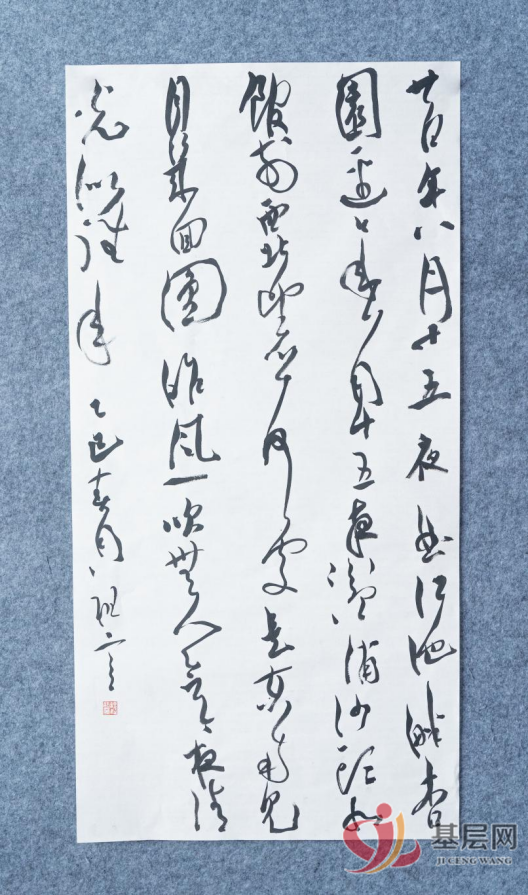 昔年八月十五夜曲江池畔杏
園邊今年八月十五夜湓浦沙頭水
館前西北望鄉何處是東南見
月幾回圓昨風一吹無人會今夜清
光似往年 乙巳春月
基层网
JI CENG WANG